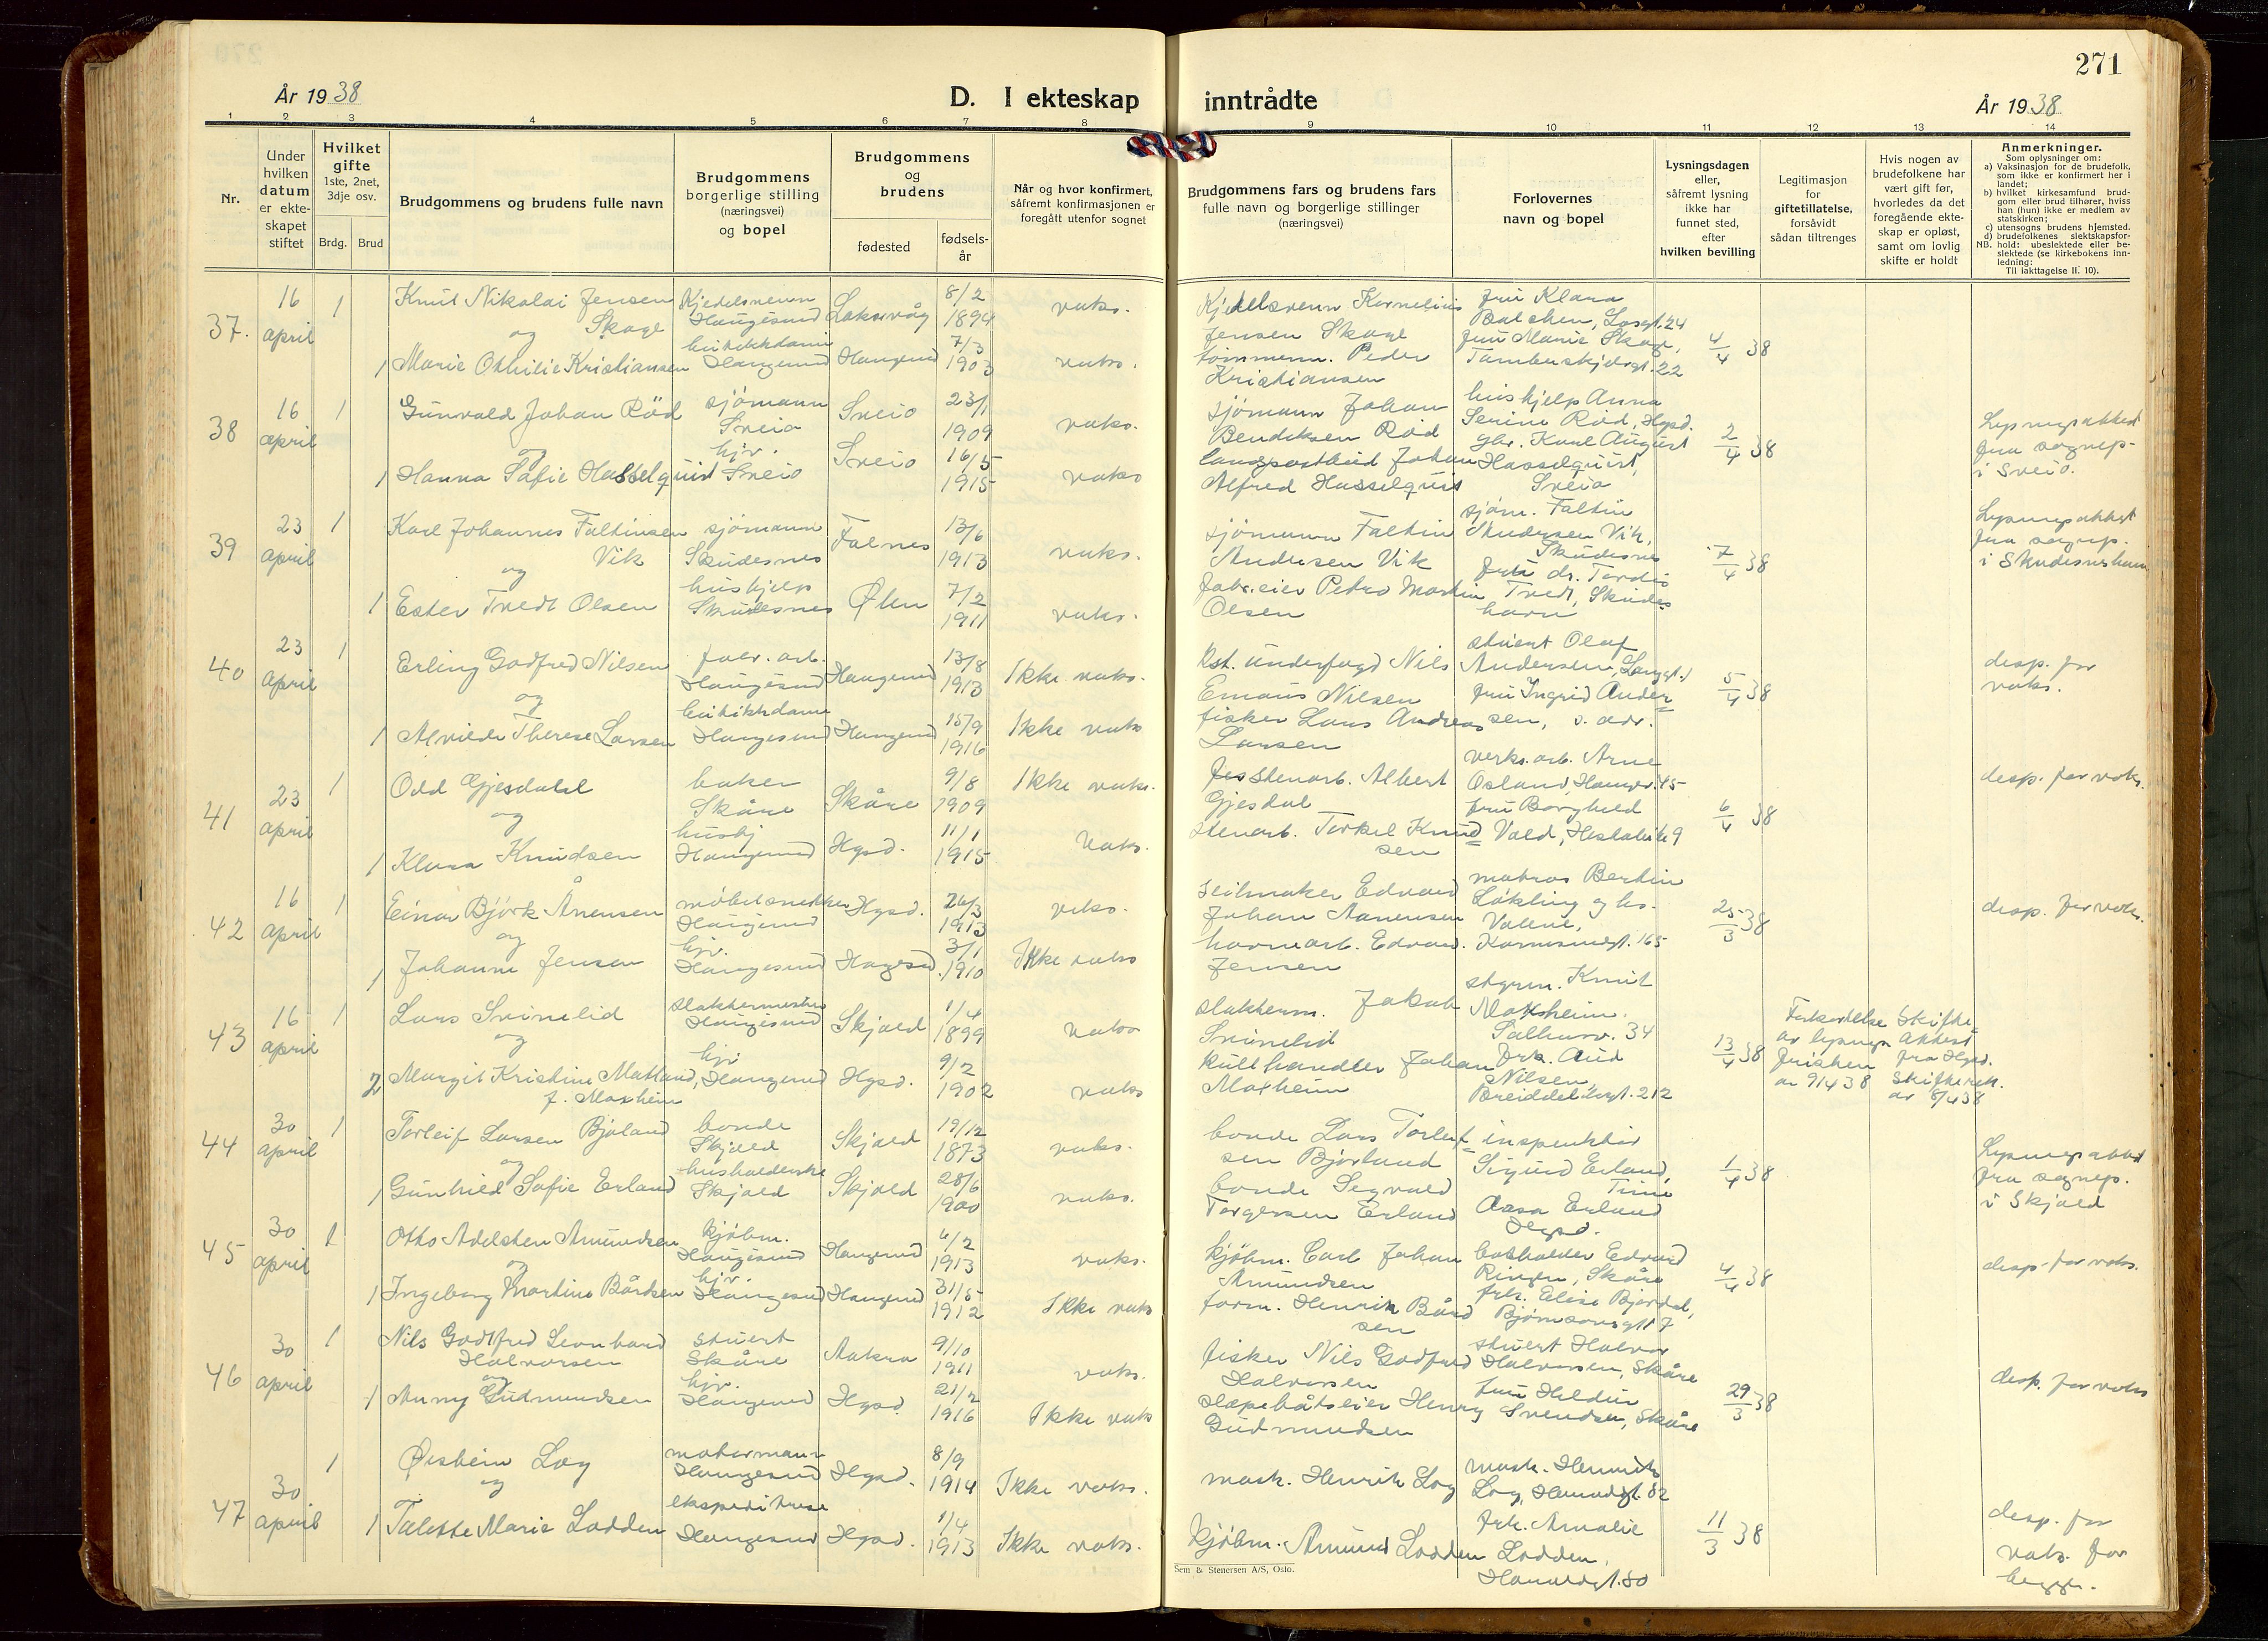 271
År 1938
D. I ekteskap
inntrådte
År 1938
1
2
3
4
5
6
7
8
9
10
11
12
13
14
Nr.
Under
hvilken
datum
er ekte-
skapet
stiftet
Hvilket
gifte
1ste, 2net,
3dje osv.
Brdg.
Brud
Brudgommens og brudens fulle navn
Brudgommens
borgerlige stilling
(næringsvei)
og bopel
Brudgommens
og
brudens
fødested
fødsels-
år
Når og hvor konfirmert,
såfremt konfirmasjonen er
foregått utenfor sognet
Brudgommens fars og brudens fars
fulle navn og borgerlige stillinger
(næringsvei)
Forlovernes
navn og bopel
Lysningsdagen
eller,
såfremt lysning
ikke har
funnet sted,
efter
hvilken bevilling
Legitimasjon
for
giftetillatelse,
forsåvidt
sådan tiltrenges
Hvis nogen av
brudefolkene har
vært gift før,
hvorledes da det
foregående ekte-
skap er opløst,
samt om lovlig
skifte er holdt
Anmerkninger.
Som oplysninger om:
a) Vaksinasjon for de brudefolk,
som ikke er konfirmert her i
landet;
b) hvilket kirkesamfund brud-
gom eller brud tilhører, hvis
han (hun) ikke er medlem av
statskirken;
c) utensogns brudens hjemsted.
d) brudefolkenes slektskapsfor-
NB. hold: ubeslektede eller be-
slektede (se kirkebokens inn-
ledning:
Til iakttagelse II. 10).
37.
16
april
1
Knut Nikolai Jensen
og Skage
1 Marie Othilie Kristiansen
Kjedelsmenn
Haugesund
butikkdame
Haugesund
Laksevåg
Haugesund
8/2
1894
7/3
1903
vaks.
vaks.
Kjedelsvenn Kornelius
Jensen Skage
tømmerm. Peder
Kristiansen
fru Klara
Balchen, 24
fru Marie Skage,
Tambarskjelvgt. 22
4/4 38
38
16
april
1
Gunvald Johan Rød
og
1 Hanna Sofie Hasselquist
sjømann
Sveio
hjv.
Sveio
Sveio
Sveio
23/1
1909
16/5
1915
vaks.
vaks
sjømann Johan
Bendiksen Rød
landpostbud Johan
Alfred Hasselquist
hushjelp Anna
Serine Rød, Hgsd.
gbr. Karl August
Hasselquist,
Sveio
2/4 38
Lysningsattest
fra sognep-
i Sveio.
39
23
april
1
Karl Johannes Faltinsen
Vik
og
1 Ester Tvedt Olsen
sjømann
Skudesnes
hushjelp
Skudesnes
Falnes
Ølen
13/6
1913
7/2
1911
vaks.
vaks.
sjømann Faltin
Andersen Vik
fabr.eier Petro Martin
Olsen
sjøm. Faltin
Andersen Vik,
Skudesnes
fru dr. Tordis
Tvedt, Skudes
havn
7/4 38
Lysningsattest
fra sognep.
i Skudesneshavn
40
23
april
1
Erling Godfred Nilsen
og
1 Alvilde Therese Larsen
fabr. arb.
Haugesund
butikkdame
Haugesund
Haugesund
Haugesund
13/8
1913
15/9
1916
Ikke vaks.
Ikke vaks
kst. underfogd Nils
Emaus Nilsen
fisker Lars Andreas
Larsen
stuert Olaf
Andersen,
fru Ingrid Ander
sen, s. adr.
5/4 38
desp. for
vaks.
41
23
april
1
Odd Gjesdal
og
1 Klara Knudsen
baker
Skåre
hushj
Haugesund
Skåre
Hgsd.
9/8
1909
11/1
1915
Ikke vaks.
Vaks.
Stenarb. Albert
Gjesdal
stenarb. Torkel Knud
sen
verks.arb. Arne
Osland, 45
fru Borghild
Vold, 9
6/4 38
desp. for vaks.
42
16
april
1
Einar Bjørk Ånensen
og
1 Johanne Jensen
møbelsnekker
Haugesund
hjv.
Haugesund
Hgsd.
Hagesd.
26/3
1913
3/1
1910
vaks.
Ikke vaks
seilmaker Edvard
Johan Aanensen
havnearb. Edvard.
Jensen
matros Bertin
Løkling og hs.
165
25/3 38
desp. for vaks.
43
16
april
1
Lars Svinelid
og
2 Margit Kristine Matland,
f. Moxheim
slaktermester
Haugesund
hjv.
Haugesund
Skjold
Hgsd.
1/4
1899
9/2
1902
vaks
vaks
slakterm. Jakob
Svinelid
kullhandler Johan
Moxheim
styrm. Knut
Moxheim.
Salhusv. 34
frk. Aud
Nilsen,
Breidablikgt. 212
13/4 38
av lysnings
fristen
av 9/4 38
Skifte-
attest
fra Hgsd.
skifterett.
av 8/4 38
44
30
april
1
Torleif Larsen Bjoland
og
1 Gunhild Sofie Erland
bonde
Skjold
husholderske
Skjold
Skjold
Skjold
19/12
1873
28/6
1900
vaks.
vaks.
bonde Lars Torleif
sen Bjorland
bonde Segvald
Torgersen Erland
inspektør
Sigurd Erland,
Time
Aasa Erland
Hgsd.
1/4 38
Lysningsattest
fra sognep.
i Skjold
45
30
april
1
Otto Adelsten Amundsen
og
1 Ingeborg Martine Bårdsen
kjøbm.
Haugesund
hjv.
Haugesund
Haugesund
Haugesund
6/2
1913
31/5
1912
vaks.
Ikke vaks
kjøbm. Carl Johan
Amundsen
form. Henrik Bård
sen
bokholder Edvard
Ringen, Skåre
frk. Elise Bjordal,
Bjørnsonsgt 7
4/4 38
desp. for vaks.
46
30
april
1
Nils Godtfred Leonhard
Halvorsen
og
1 Anny Gudmundsen
stuert
Skåre
hjv.
Haugesund
Aakra
Hgsd.
9/10
1911
21/2
1916
vaks.
Ikke vaks
fisker Nils Godfred
Halvorsen
slepebåtseier Henry
Gudmundsen
stuert Halvor
Halvorsen, Skåre
fru Heldine
Svendsen, Skåre
29/3 38
desp. for vaks
47
30
april
1
Øistein Log
og
1 Talette Marie Lodden
motormann
Haugesund
ekspeditrise
Haugesund
Hgsd.
Hgsd.
8/9
1914
1/4
1913
Ikke vaks.
Ikke vaks.
mask. Henrik Log
kjøbm. Amund Lodden
mask. Henrik
Log, Haraldsgt. 82
frk. Amalie
Lodden,
Haraldsgt. 80
11/3 38
desp. for
vaks. for
begge.
Sem & Stenersen A/S, Oslo.